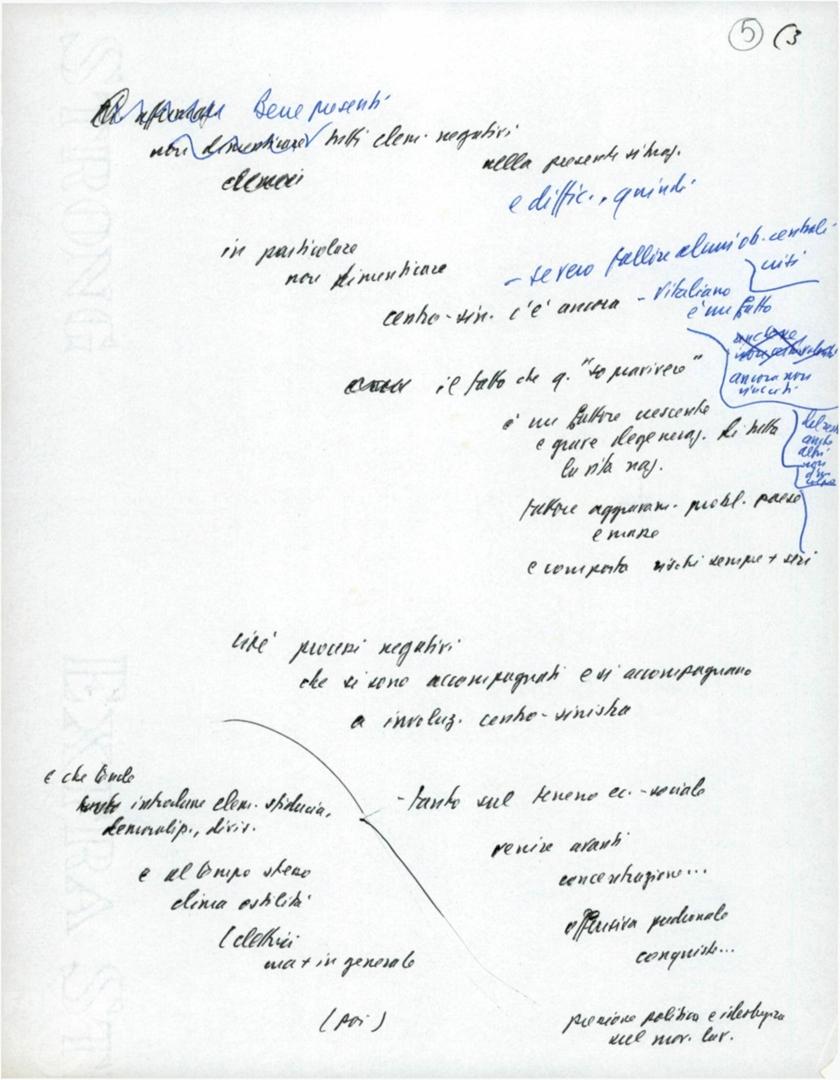 5 (3
Bene presenti
non dimenticare tutti elem. negativi
nella presente situaz.
e diffic., quindi
in particolare
non dimenticare
- se vero fallire alcuni ob. centrali
centro-sin. c'è ancora - vitaliano
è un fatto
il fatto che q. "sopravivere"
ancora non
è un fattore crescente
e grave degeneraz. di tutta
la vita naz.
fattore aggravam. probl. paese
e masse
e comporta rischi sempre + seri
cioè processi negativi
che si sono accompagnati e si accompagnano
a involuz. centro-sinistra
e che tende
introdurre elem. sfiducia,
demoraliz., divis.
- tanto sul terreno ec.-sociale
venire avanti
concentrazione...
e al tempo stesso
clima ostilità
offensiva padronale
conquiste...
ma + in generale
(poi)
pressione politica e ideologica
sul mov. lav.
STRONG
EXTRA ST